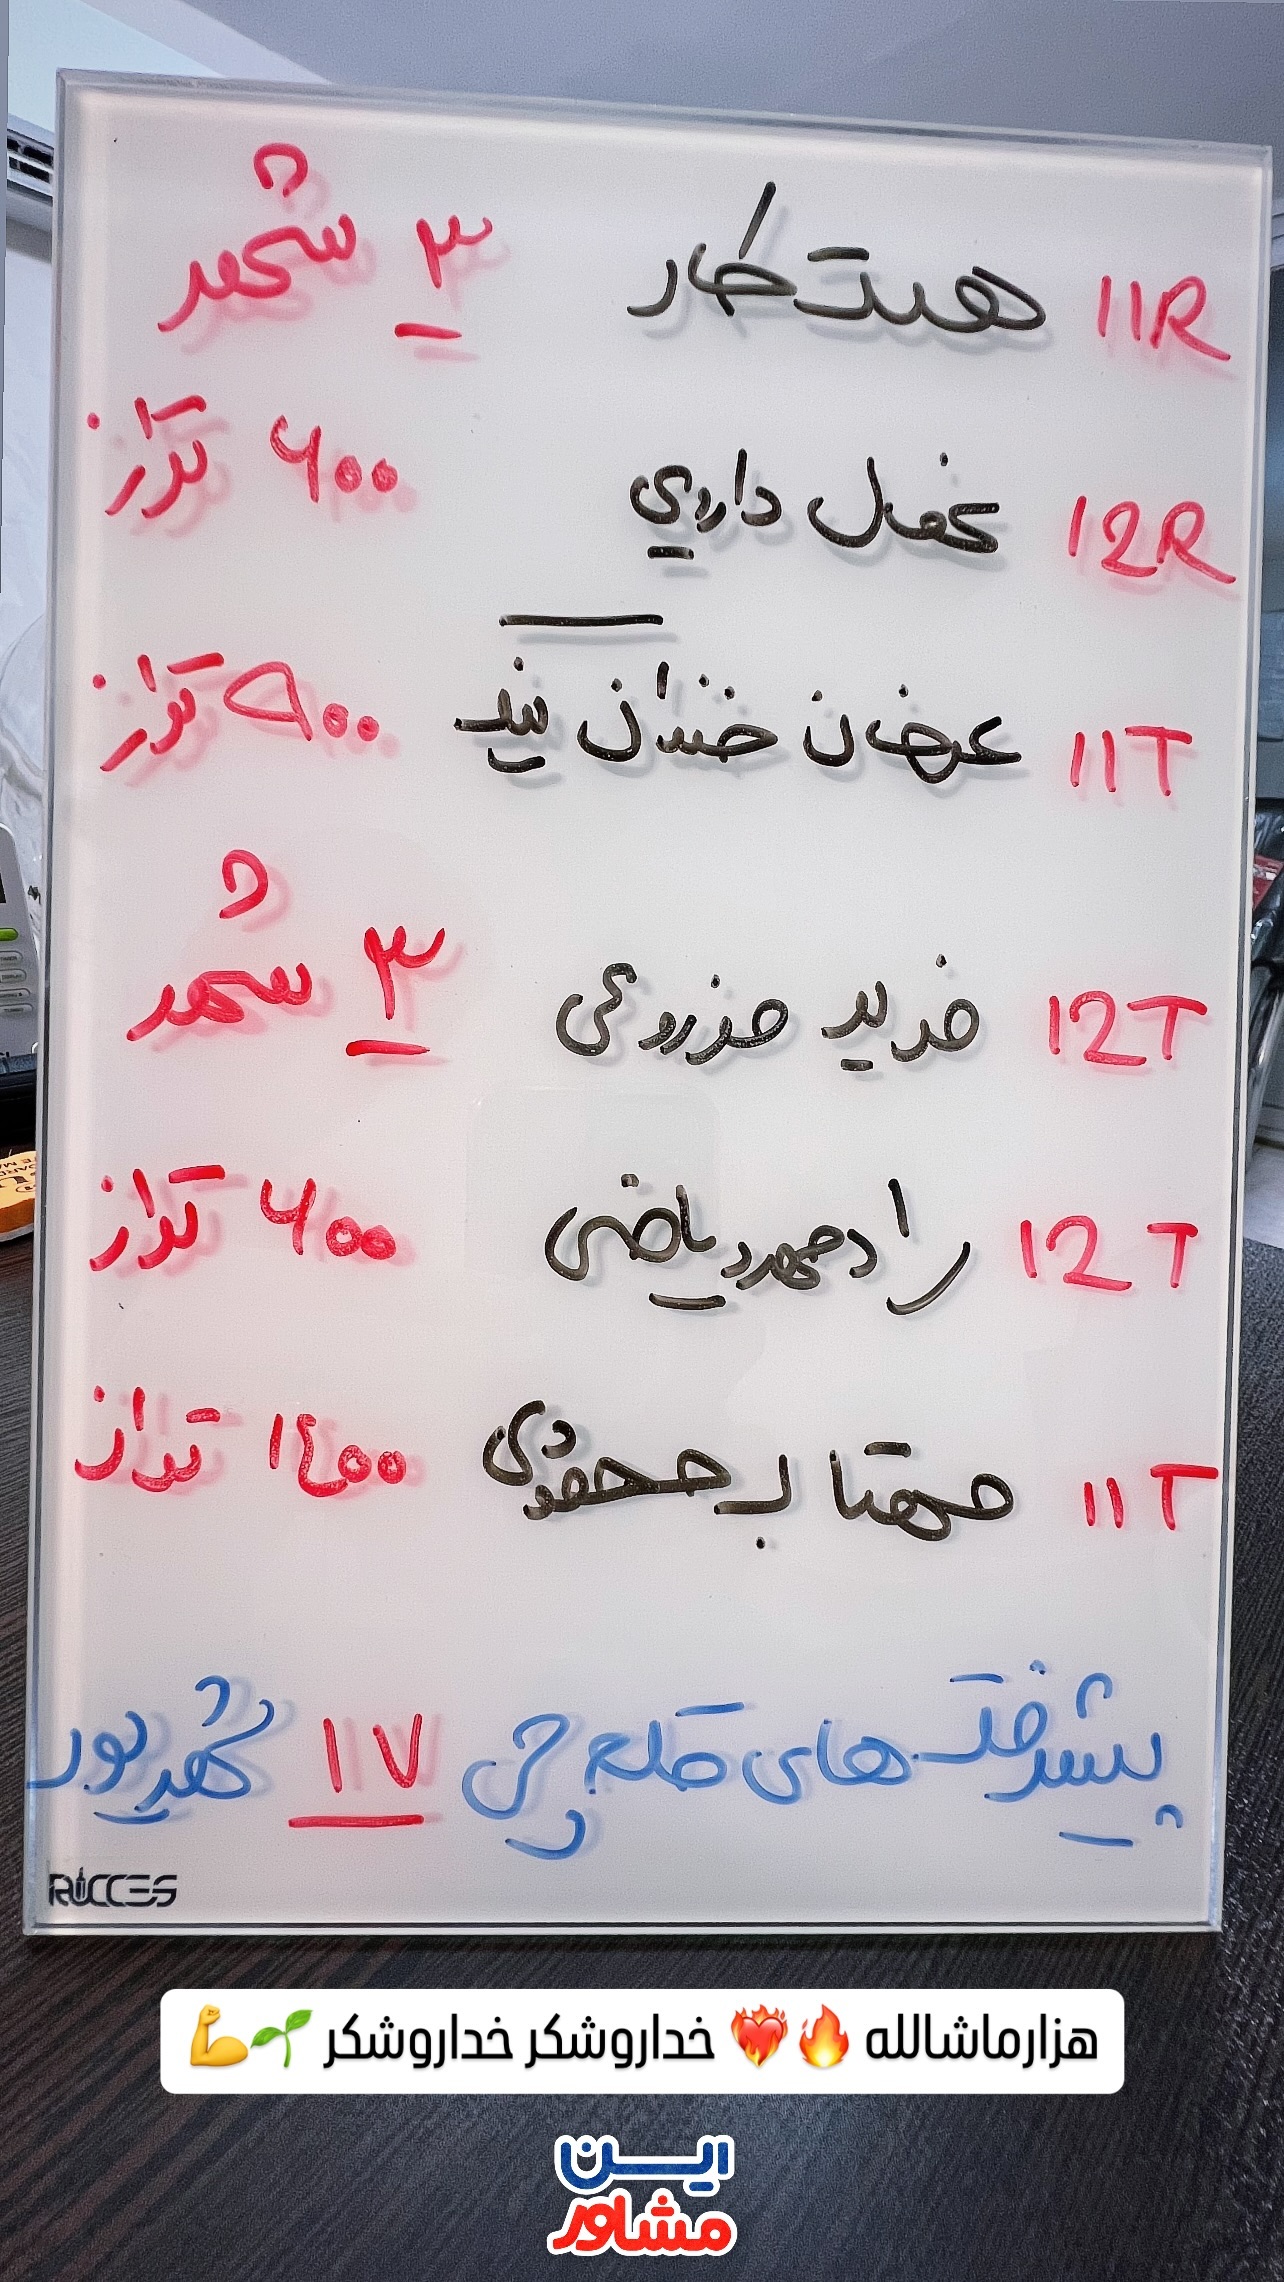 11R هستکار ۳ شهر
12R غزل دارویی ۶۰۰ تراز
11T عرفان خندان نیت ۹۰۰ تراز
12T فرید مزروعی ۳ شهر
12T رادمهر ریاضی ۴۰۰ تراز
11T مهتاب محمودی ۱۴۰۰ تراز
پیشرفت های قلم چی ۱۷ شهریور
RICCES
هزارماشالله 🔥❤️‍🔥 خداروشکر خداروشکر 🌱💪
این
مشاور